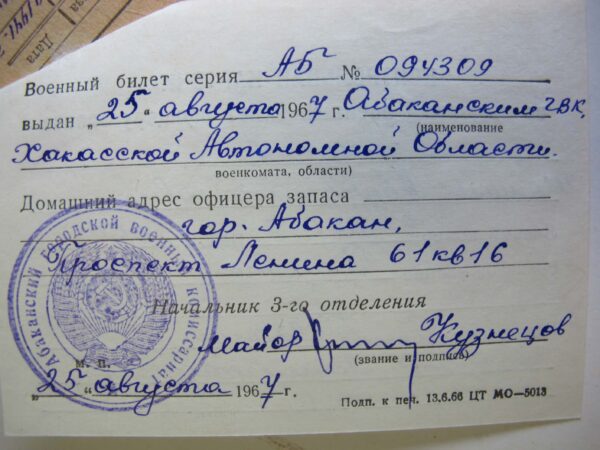 1941
Дата
Военный билет серия АБ № 094309
выдан „25“ августа 1967 г. Абаканским ГВК,
(наименование
Хакасской Автономной Области.
военкомата, области)
Домашний адрес офицера запаса
гор. Абакан,
Проспект Ленина 61 кв 16
Начальник 3-го отделения
майор Кузнецов
(звание и подпись)
м. п.
„25“ августа 1967 г.
Подп. к печ. 13.6.66 ЦТ МО—5013
Абаканский городской военный комиссариат